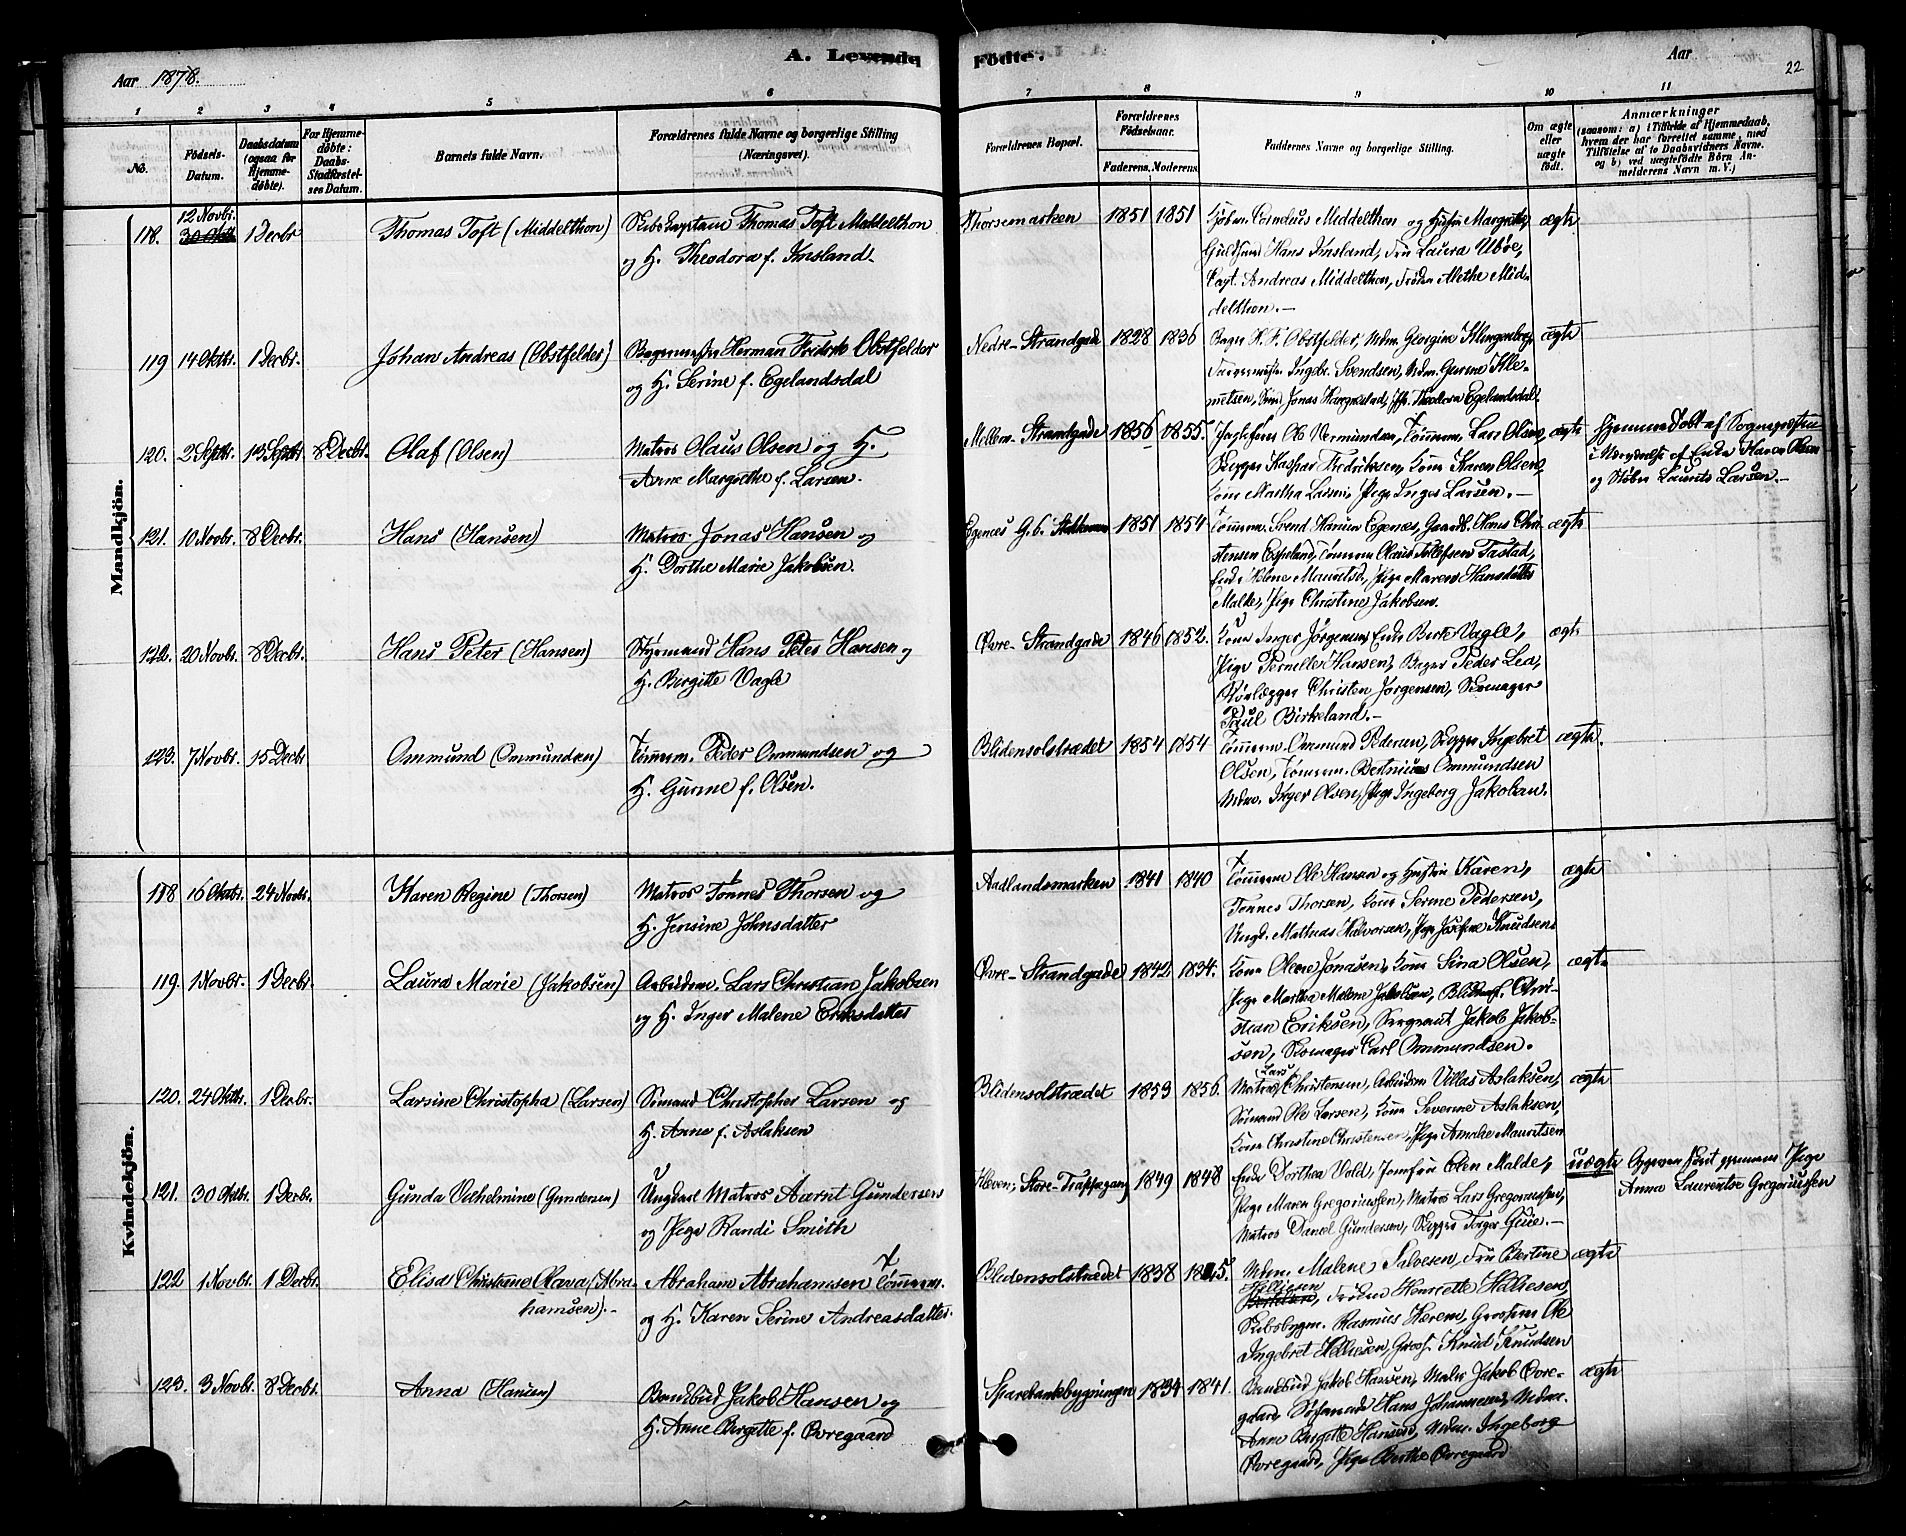 A. Levende Födte.
Aar 1878.
Aar
22
1 2 3 4 5 6 7 8 9 10 11
No.
Födsels-Datum.
Daabsdatum (ogsaa for Hjemme-döbte).
For Hjemme-döbte: Daabs-Stadfæstel-ses Datum.
Barnets fulde Navn.
Forældrenes fulde Navne og borgerlige Stilling (Næringsvei).
Forældrenes Bopæl.
Forældrenes Födselsaar.
Faderens. Moderens.
Faddernes Navne og borgerlige Stilling.
Om ægte eller uægte födt.
Anmærkninger
(saasom: a) i Tilfælde af Hjemmedaab, hvem der har forrettet samme, med Tilföielse af to Daabsvidners Navne. og b) ved uægtefödte Börn An-melderens Navn m. V.)
Mandkjön.
118. 12 Novbr. 30 Oktb. 1 Decbr Thomas Toft (Middelthon) Skibskaptein Thomas Toft Middelthon
og H. Theodora f. Imsland
Thorsemarken 1851 1851 Kjøbm. Cornelius Middelthon og Hustru Margrethe, ægte
Guldsmed Hans Imsland, Fru Laura Ubøe,
Capt. Andreas Middelthon, Frøken Alethe Mid-
delthon.-
119 14 Oktbr. 1 Decbr. Johan Andreas (Obstfelder) Bagermester Herman Fredrik Obstfelder
og H. Serine f. Egelandsdal
Nedre-Strandgade 1828 1836 Bager H. F. Obstfelder, Mdm. Georgine Klingenberg, ægte
Farvermester Ingbr. Svendsen, Mdm. Gurine Kle-
metsen, Jonas Haugnestad, Theodora Egelandsdal.
120. 2 Septbr. 13 Septbr 8 Decbr. Olaf (Olsen) Matros Olaus Olsen og H.
Anne Margrethe f. Larsen.
Mellem-Strandgade 1856 1855. Jagtfører Ole Vermundsen, Tømmerm. Lars Olsen, ægte
Skipper Kaspar Fredriksen, Kone Karen Olsen,
Kone Martha Larsen, Pige Inger Larsen.-
Hjemmedøbt af Sognepresten
i Nærværelse af Enke Karen Olsen
og Støber Laurits Larsen.-
121. 10 Novbr. 8 Decbr. Hans (Hansen) Matros Jonas Hansen og
H. Dorthe Marie Jakobsen.
Egenes G. b. 1851 1854 Tømmerm. Svend Hansen Egenæs, Gaardb. Hans Chri- ægte
stensen Espeland, Tømmerm. Olaus Tollefsen Tastad,
Enke Helene Mauritsd., Pige Maren Hansdatter
Malde, Pige Christine Jakobsen.
122. 20 Novbr. 8 Decbr. Hans Peter (Hansen) Styrmand Hans Peter Hansen og
H. Birgitte Vagle
Øvre-Strandgade 1846 1852. Kone Inger Jørgensen, Enke Berte Vagle, ægte
Pige Pernelle Hansen, Bager Peder Lea,
Rørlægger Christen Jørgensen, Skomager
Paul Birkeland.-
123. 7 Novbr. 15 Decbr Ommund (Ommundsen) Tømmerm. Peder Ommundsen og
H. Gurine f. Olsen.
Blidensolstrædet 1854 1854 Tømmerm. Ommund Pedersen, Skipper Ingebret ægte.
Olsen, Tømmerm. Bertinius Ommundsen
Mdm. Inger Olsen, Pige Ingeborg Jakobsen.
Kvindekjön.
118 16 Oktbr. 24 Novbr. Karen Regine (Thorsen) Matros Tønnes Thorsen og
H. Jensine Johnsdatter
Aadlandsmarken 1841 1840 Tømmerm. Ole Hansen og Hustru Karen, ægte
Tønnes Thorsen, Kone Serine Pedersen,
Ungk. Mathias Halvorsen, Pige Josefine Knudsen
119. 1 Novbr. 1 Decbr. Laura Marie (Jakobsen) Arbeidsm. Lars Christian Jakobsen
og H. Inger Malene Eriksdatter
Øvre-Strandgade 1842 1834. Kone Olene Jonasen, Kone Sina Olsen, ægte
Pige Martha Malene Jakobsen, Blikkensl. Chri-
stian Eriksen, Sergeant Jakob Jakob-
sen, Skomager Carl Ommundsen.
120. 24 Oktbr. 1 Decbr. Larsine Christopha (Larsen) Sømand Christopher Larsen og
H. Anne f. Aslaksen
Blidensolstrædet 1853 1856. Matros Lars Christensen, Arbeidsm Villas Aslaksen, ægte
Sømand Ole Larsen, Kone Severine Aslaksen,
Kone Christine Christensen, Pige Amalie Mauritsen
121. 30 Oktbr. 1 Decbr. Gunda Vilhelmine (Gundersen) Ungkarl Matros Aarnt Gundersen
og Pige Randi Smith
Kleven, Store-Trappegang 1849 1848 Enke Dorthea Vold, Jomfru Elen Malde, uægte
Pige Maren Gregoriussen, Matros Lars Gregoriussen,
Matros Daniel Gundersen, Skipper Torger Geue.-
Opgiven født gjennem Pige
Anna Laurentse Gregoriussen
122 1 Novbr. 1 Decbr. Elisa Christine Olava (Abra-
hamsen).-
Abraham Abrahamsen Tømmerm.
og H. Karen Serine Andreasdatter.
Blidensolstrædet 1838 1845. Mdm. Malene Salvesen, Fru Bertine ægte
Helliesen, Frøken Henriette Helliesen,
Skibsbygm. Rasmus Hærem, Grosserer Ole
Ingebret Helliesen, Gross. Knud Knudsen
123. 3 Novbr. 8 Decbr. Anna (Hansen) Bandbud Jakob Hansen og
H. Anne Birgitte f. Øvregaard
Sparebankbygningen 1834 1841. Bandbud Jakob Hansen, Maler Jakob Øvre- ægte
gaard, Søfarende Hans Johannesen, Mdm.
Anne Birgitte Hansen, Mdm. Ingeborg
Øvregaard, Pige Berthe Øvregaard